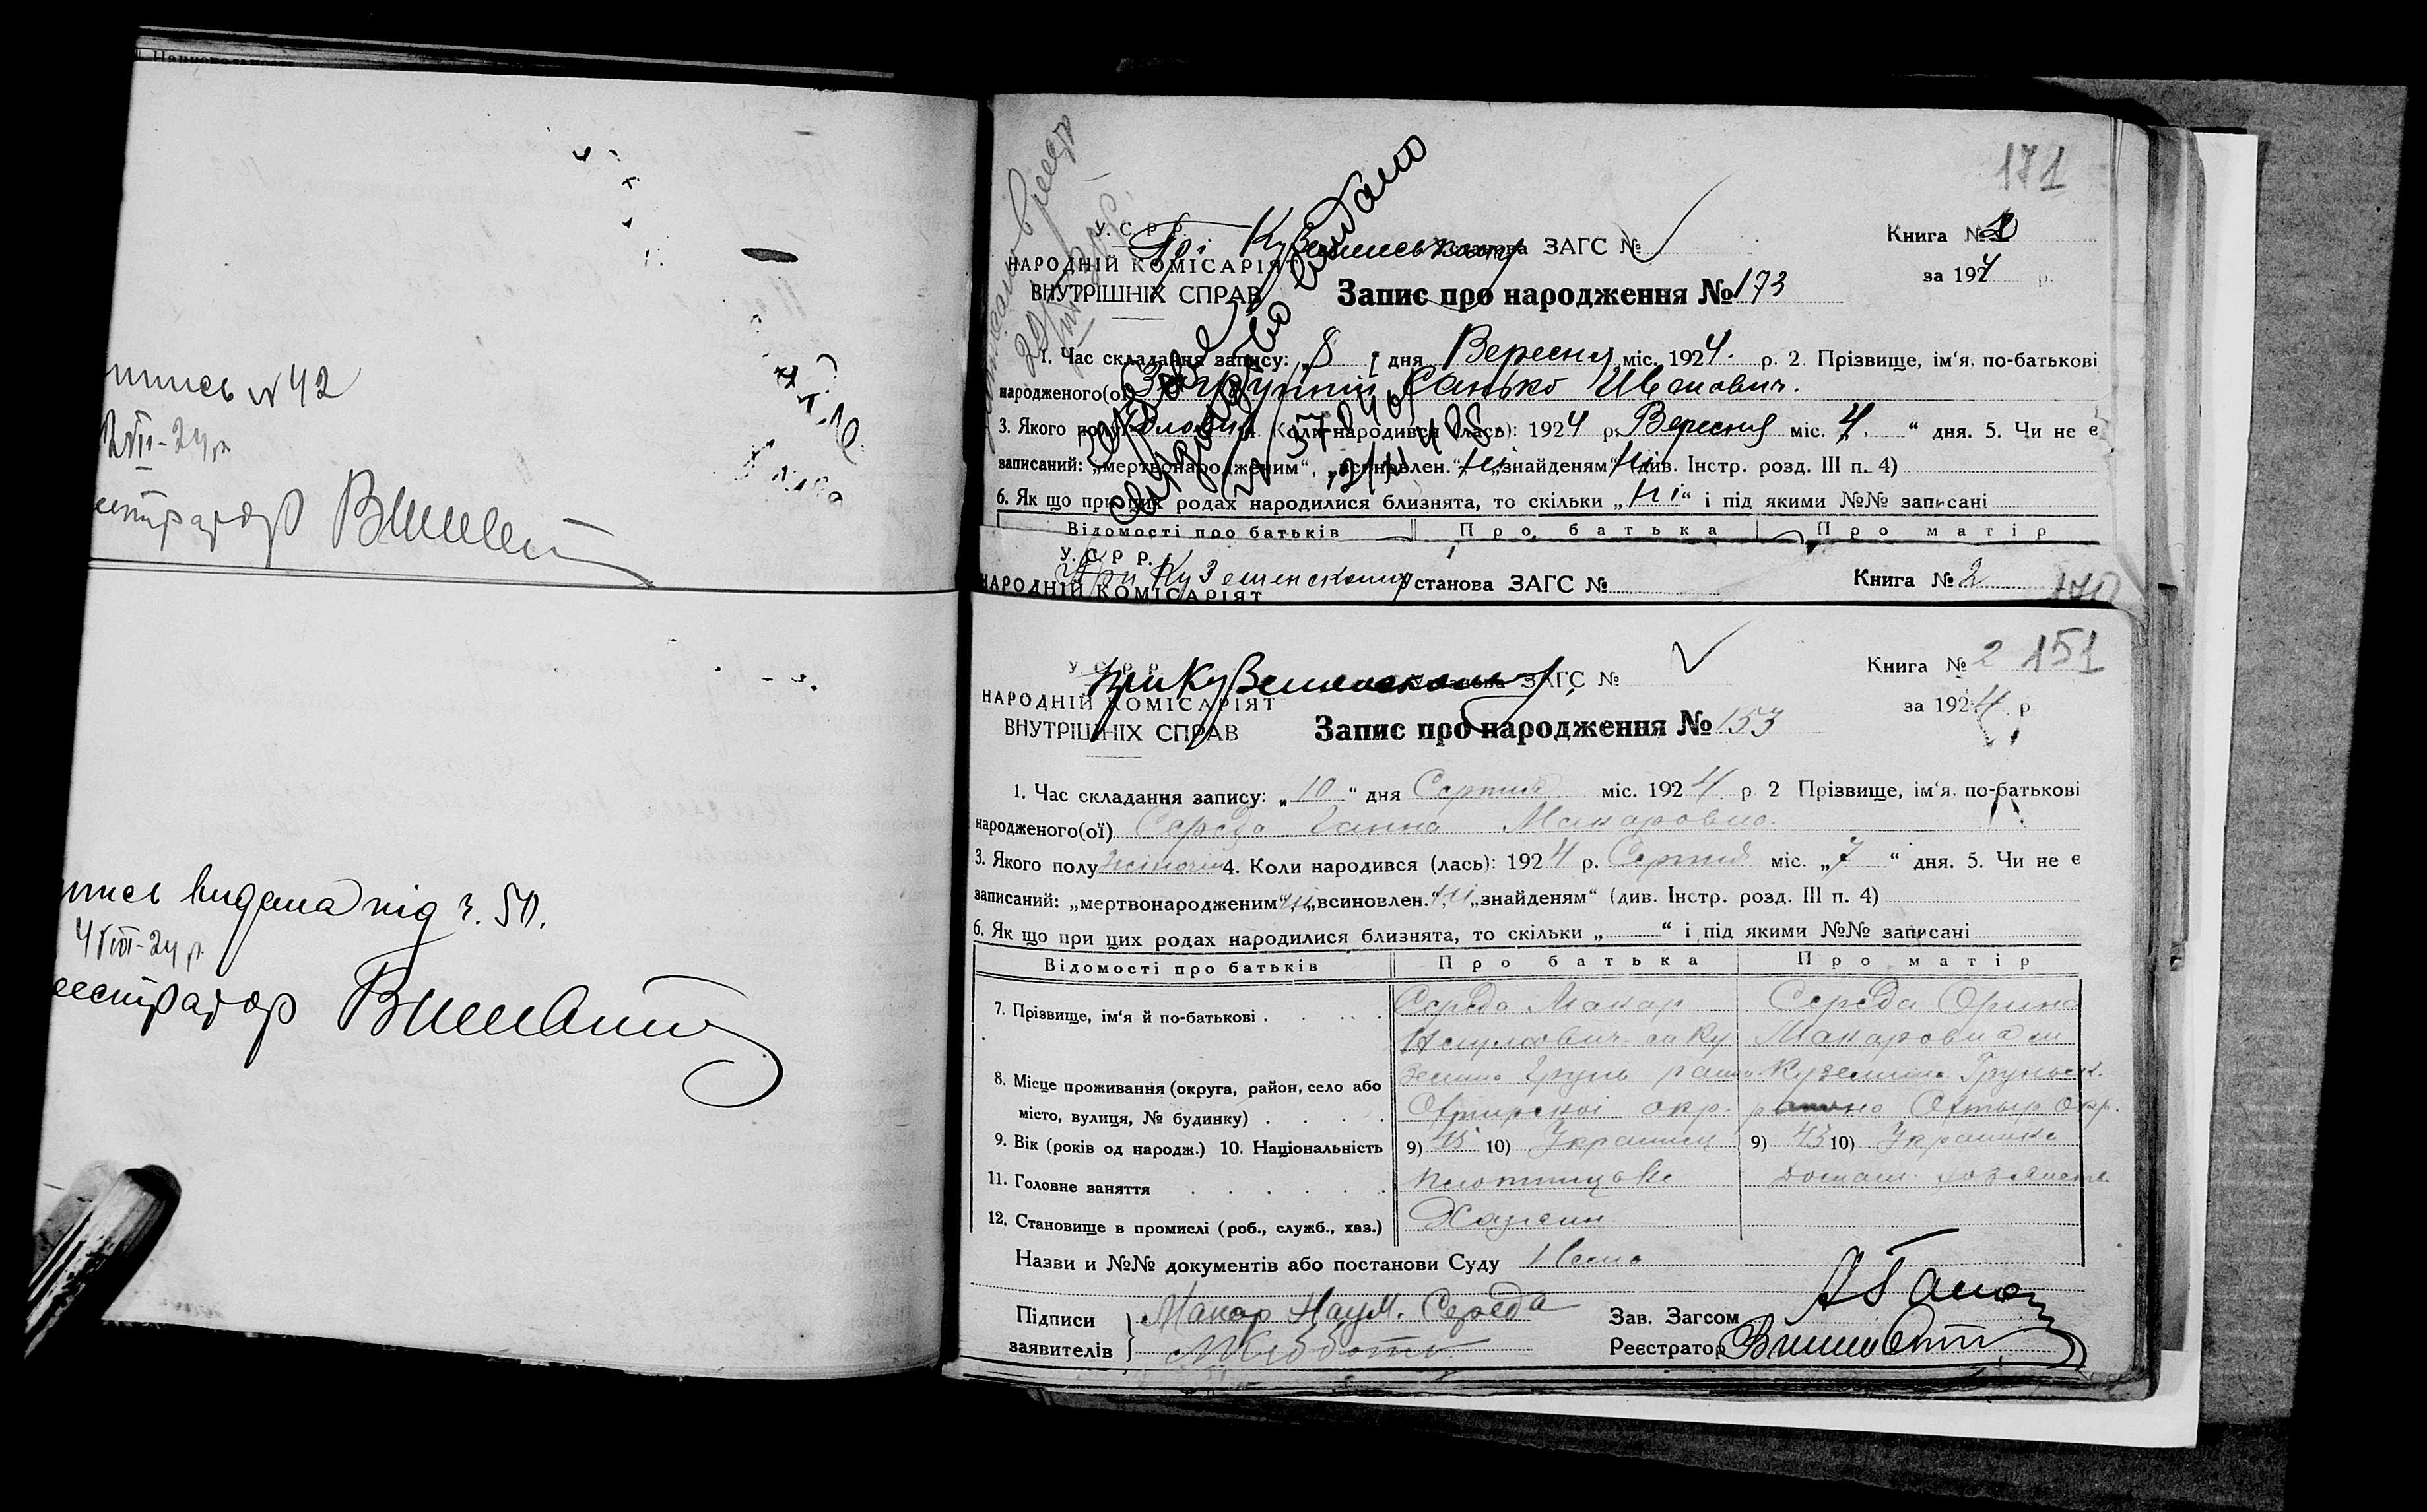 випись № 42
2 VII - 24 р.
Реєстратор
випись видана під ч. 50.
4 VIII - 24 р.
Реєстратор
171
У. С. Р. Р.
НАРОДНІЙ КОМІСАРІЯТ
ВНУТРІШНІХ СПРАВ
При Куземенському установа ЗАГС №
Книга № 2
за 1924 р.
Запис про народження № 173
свідоцтво видано
1. Час складання запису: „8“ дня Вересня міс. 1924 р. 2. Прізвище, ім‘я, по-батькові
народженого(ої) Санько Иванович.
3. Якого полу 4. Коли народився (лась): 1924 р. Вересня міс. „4“ дня. 5. Чи не є
записаний: „мертвонародженим“, „всиновлен.“ ні „знайденям“ ні (див. Інстр. розд. III п. 4)
6. Як що при цих родах народилися близнята, то скільки „ні“ і під якими №№ записані
Відомості про батьків Про батька Про матір
У. С. Р. Р.
При Куземенскому установа ЗАГС № Книга № 2 170
НАРОДНІЙ КОМІСАРІЯТ
У. С. Р. Р.
НАРОДНІЙ КОМІСАРІЯТ
ВНУТРІШНІХ СПРАВ
При Куземенскому установа ЗАГС №
Книга № 2 151
за 1924 р
Запис про народження № 153
1. Час складання запису: „10“ дня Серпня міс. 1924 р 2 Прізвище, ім‘я, по-батькові
народженого(ої) Середа Ганна Макаровна.
3. Якого полу жіночий 4. Коли народився (лась): 1924 р. Серпня міс. „7“ дня. 5. Чи не є
записаний: „мертвонародженим“ ні, „всиновлен.“ ні, „знайденям“ (див. Інстр. розд. III п. 4)
6. Як що при цих родах народилися близнята, то скільки „ “ і під якими №№ записані
Відомості про батьків Про батька Про матір
7. Прізвище, ім‘я й по-батькові . Середа Макар Середа Орина
Наумович Макаровна
8. Місце проживання (округа, район, село або Грунь Куземина Груньск.
місто, вулиця, № будинку) . Охтирскої окр. району Охтыр окр.
9. Вік (років од народж.) 10. Національність 9) 45 10) Українец 9) 43 10) Українка
11. Головне заняття домаш.
12. Становище в промислі (роб., служб., хаз.) Хазяин
Назви и №№ документів або постанови Суду Нема
Підписи заявителів Макар Наум. Середа
Зав. Загсом
Реєстратор